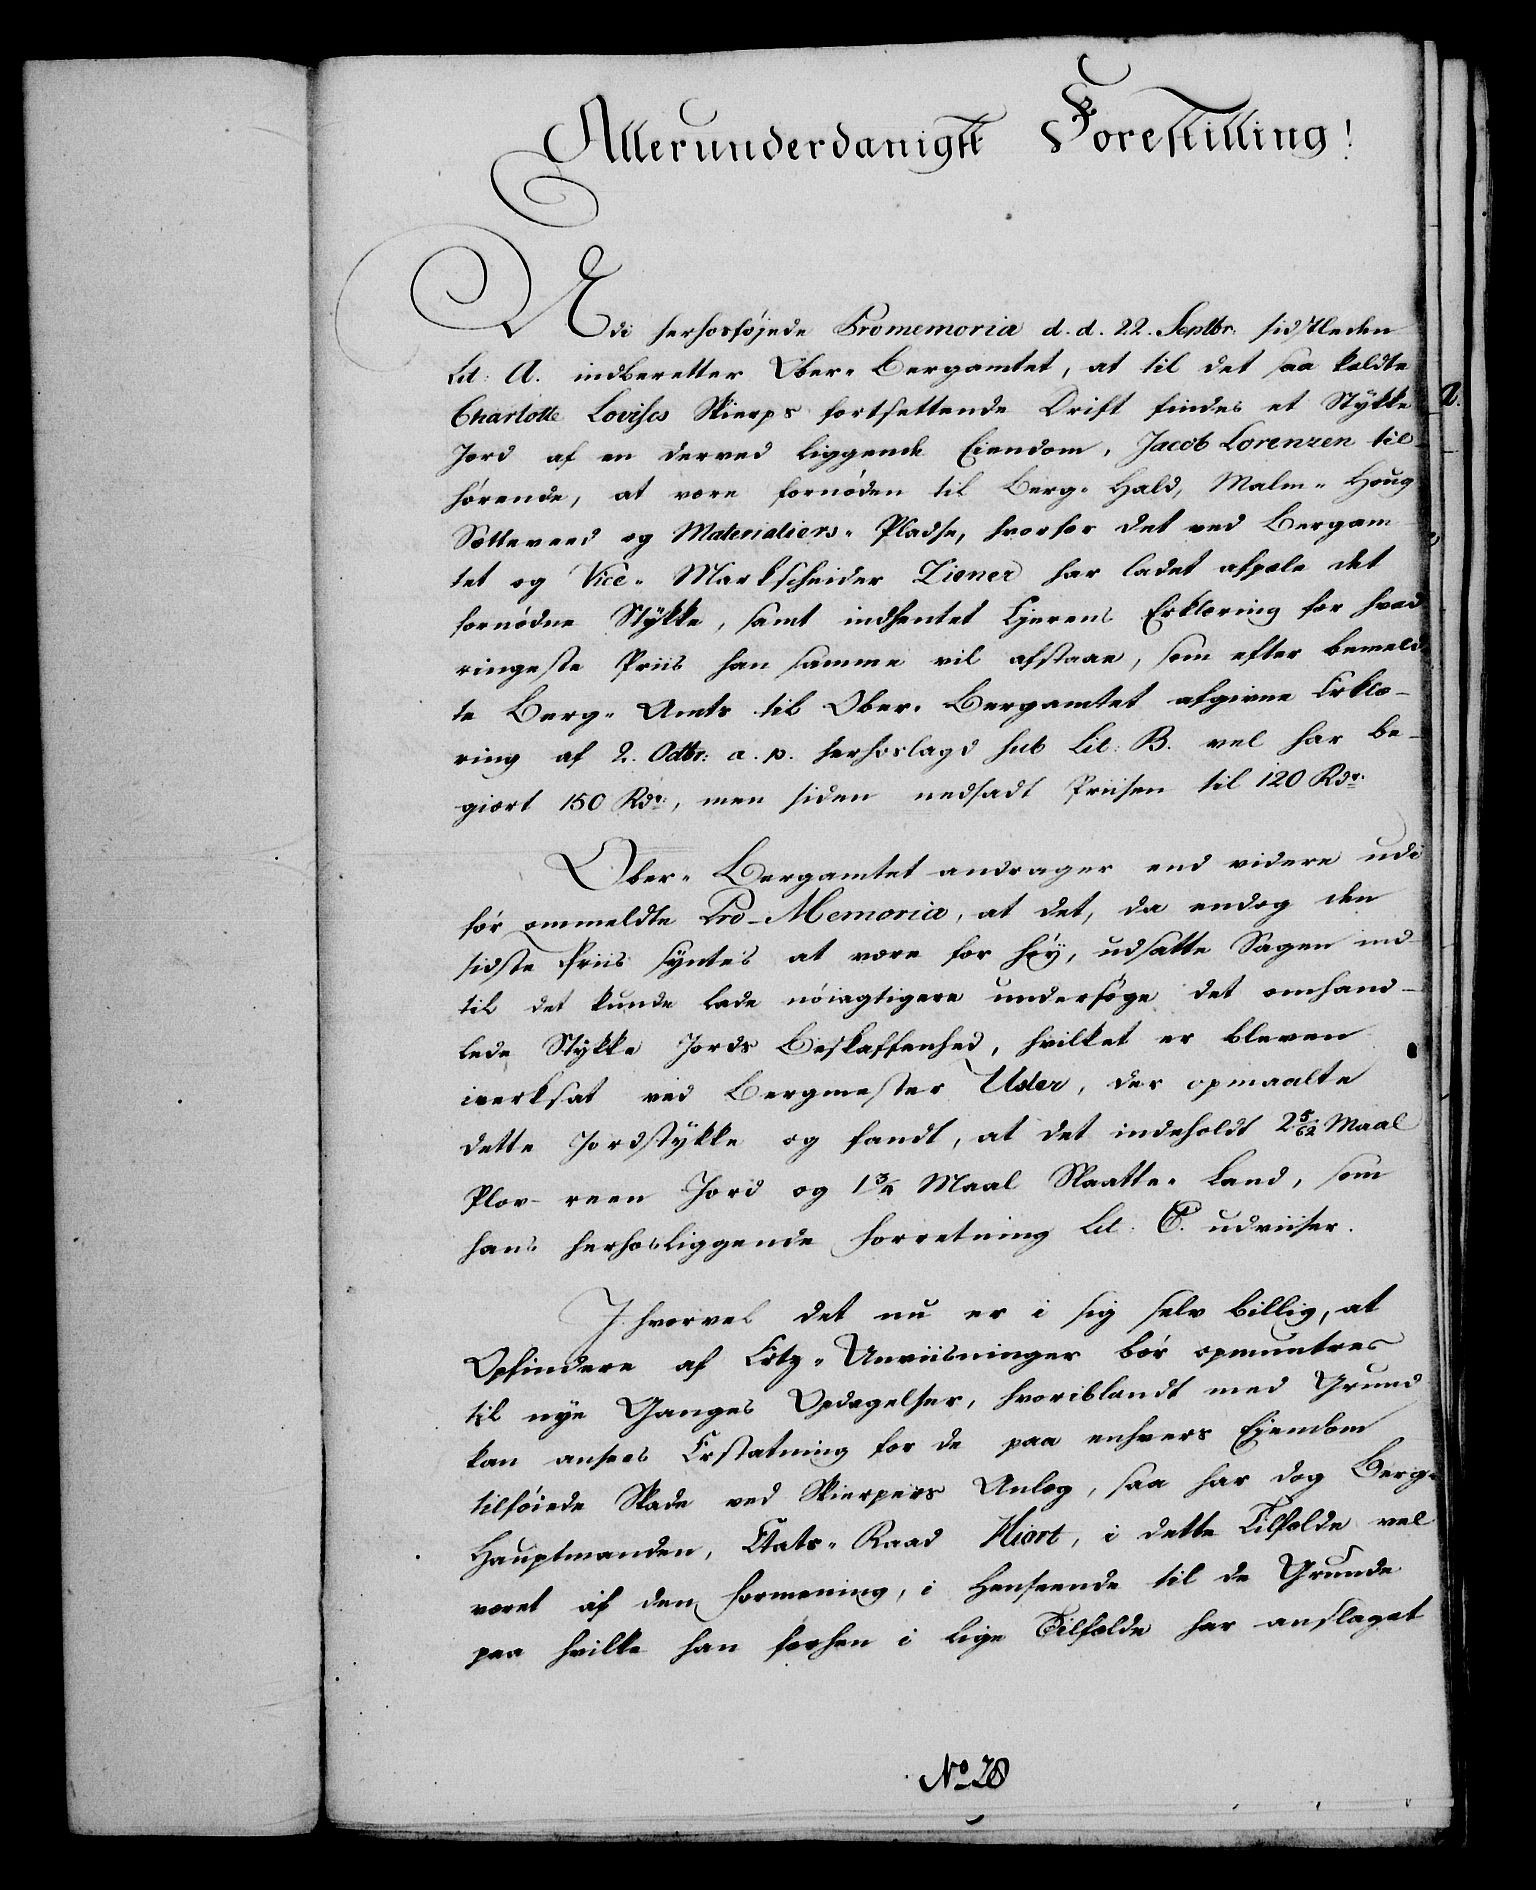 Allerunderdanigst Forestilling!
Udi herhosføjede Promemoria d. d. 22. Septbr: sidstleden
Lit: A. indberetter Ober-Bergamtet, at til det saa kaldte
Charlotte Lovises Skierps fortsettende Drift findes et Stykke
Jord af en derved liggende Eiendom, Jacob Lorenzen til-
hørende, at være fornøden til Berg-Hald, Malm-Houg
Sætteveed og Materialiers-Pladse, hvorfor det ved Bergam
tet og Vice-Markscheider Ziener har ladet afpæle det
fornødne Stykke, samt indhentet Ejerens Erklæring for hvad
ringeste Priis han samme vil afstaae, som efter bemeld-
te Berg-Amts til Ober-Bergamtet afgivne Erklæ-
ring af 2. Octbr: a. p. herhoslagd sub Lit: B. vel har be-
giært 150 Rdr:, men siden nedsadt Priisen til 120 Rdr:
Ober-Bergamtet andrager end videre udi
før ommeldte Pro-Memoria, at det, da endog den
sidste Priis syntes at være for høy, udsatte Sagen ind-
til det kunde lade nøiagtigere undersøge det omhand-
lede Stykke Jords Beskaffenhed, hvilket er bleven
iverksat ved Bergmester Uder, der opmaalte
dette Jordstykke og fandt, at det indeholdt 2 5/62 Maal
Plov-reen Jord og 1 3/4 Maal Slaatte-Land, som
hans herhosliggende Forretning Lit. C. udviiser.
Ihvorvel det nu er i sig selv billig, at
Opfindere af Ertz-Anviisninger bør opmuntres
til nye Ganges Opdagelser, hvoriblandt med Grund
kan ansees Erstatning for de paa enhvers Ejendom
tilføiede Skade ved Skierpers Anlæg, saa har dog Berg-
Hauptmanden, Etats-Raad Hiort, i dette Tilfælde vel
været af den Formening, i Henseende til de Grunde
paa hvilke han forhen i lige Tilfælde har anslaget
No 28